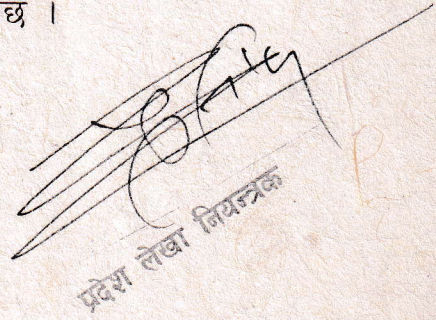 छ ।
प्रदेश लेखा नियन्त्रक